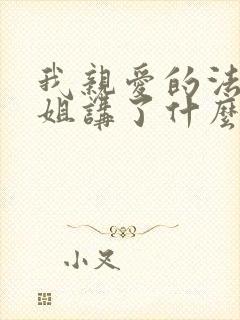 我親愛的法
姐講了什麼
小叉